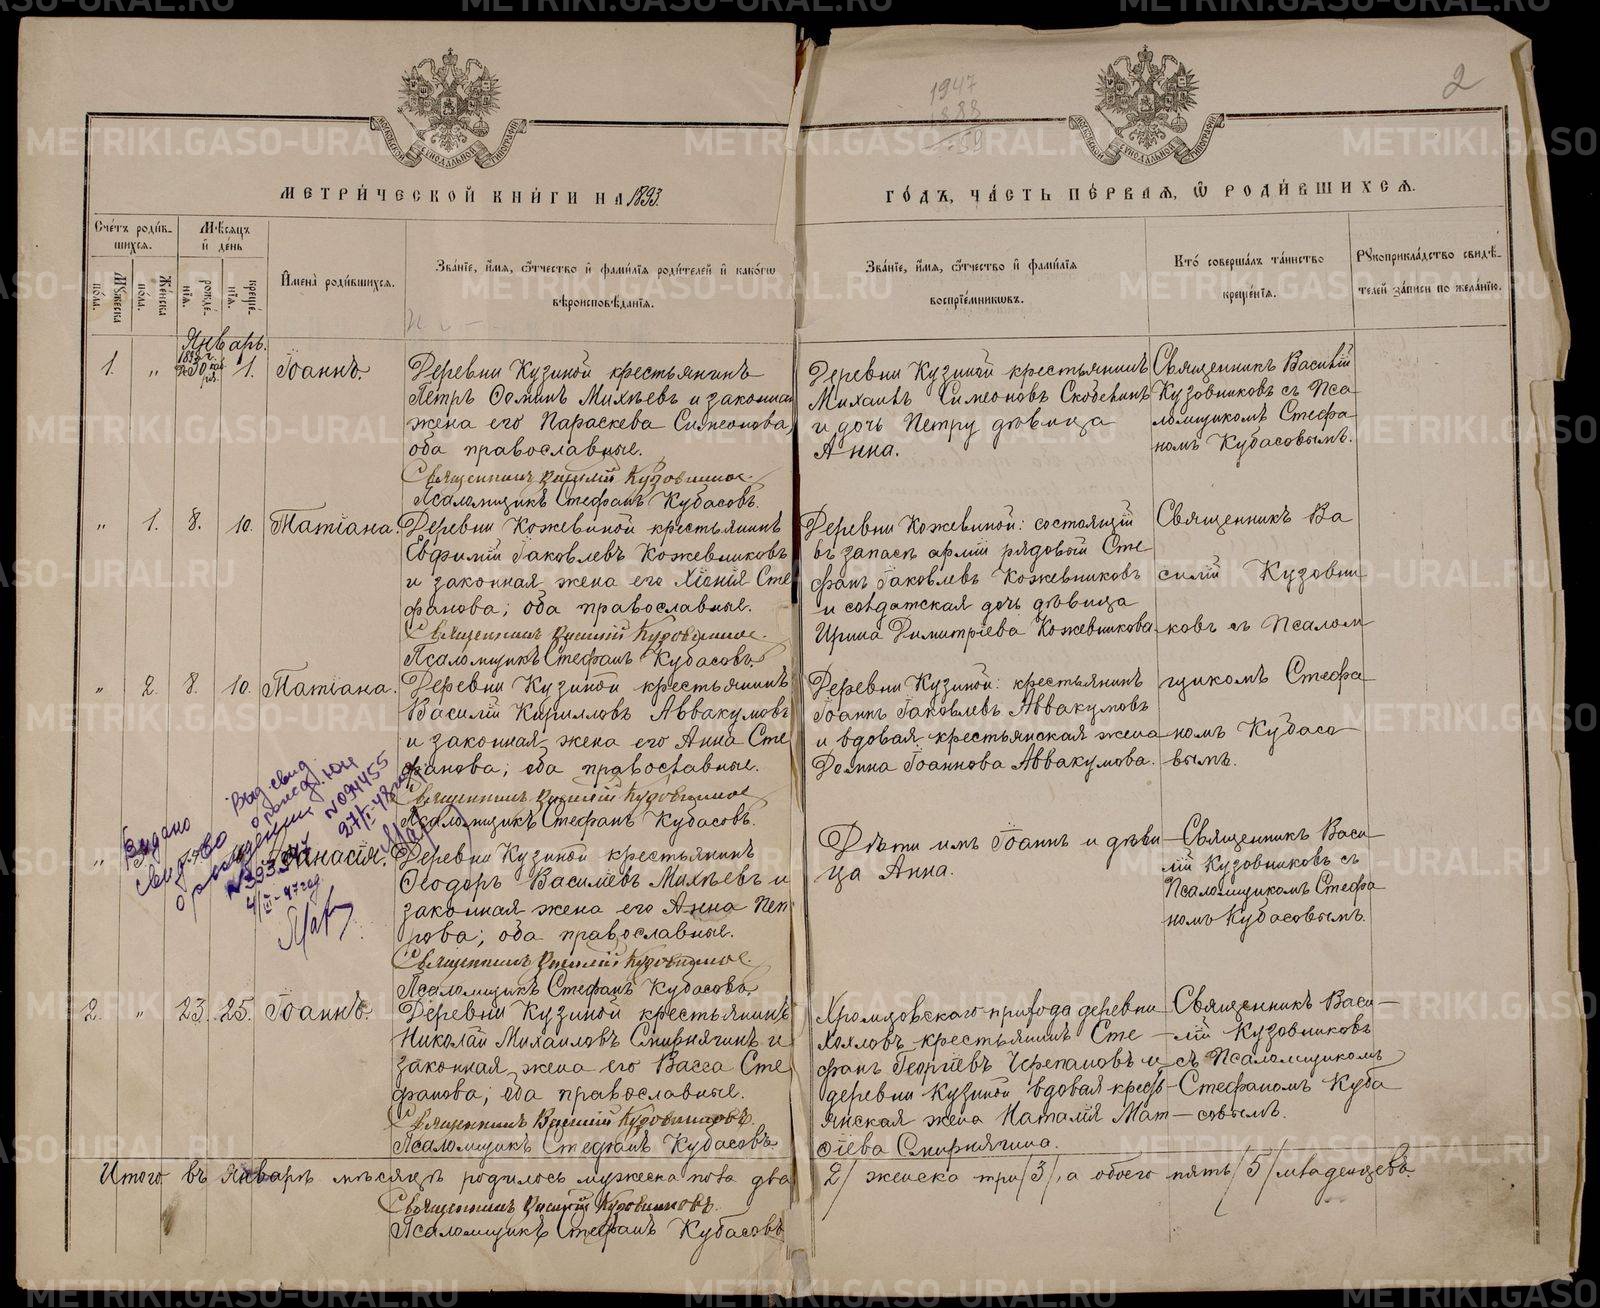 2
1947
1888
59
МЕТРИ́ЧЕСКОЙ КНИ́ГИ НА 1893.
ГО́ДЪ, ЧА́СТЬ ПЕ́РВАЯ, Ѡ РОДИ́ВШИХСЯ.
Сче́тъ роди́в-
шихся.
Мѣ́сяцъ
и҆ де́нь
Му́жеска
по́ла.
Же́нска
по́ла.
рожде́-
нїѧ.
креще́-
нїѧ.
И҆мена̀ роди́вшихся.
Зва́нїе, и҆́мѧ, ѻ҆́тчество и҆ фами́лїѧ роди́телей и҆ како́гѡ
вѣроисповѣ́данїѧ.
Зва́нїе, и҆́мѧ, ѻ҆́тчество и҆ фами́лїѧ
воспрїе́мникѡвъ.
Кто̀ соверша́лъ та́инство
креще́нїѧ.
Рукоприкла́дство свидѣ́-
телей за́писи по жела́нїю.
Январь.
1. " 30 1. Іоаннъ.
Деревни Кузиной крестьянинъ
Петръ Ѳоминъ Михѣевъ и законная
жена его Параскева Симеонова,
оба православные.
Священникъ Василій Кузовников
Псаломщикъ Стефанъ Кубасовъ.
Деревни Кузиной крестьянинъ
Михаилъ Симеоновъ Скобелинъ
и дочь Петру дѣвица
Анна.
Священникъ Василій
Кузовниковъ съ Пса
ломщикомъ Стефа
номъ Кубасовымъ.
" 1. 8. 10. Татіана.
Деревни Кожевиной крестьянинъ
Евфимій Іаковлевъ Кожевниковъ
и законная жена его Хіонія Сте
фанова; оба православные.
Священникъ Василій Кузовников
Псаломщикъ Стефанъ Кубасовъ.
Деревни Кожевиной: состоящій
въ запасѣ арміи рядовой Сте
фанъ Іаковлевъ Кожевниковъ
и солдатская дочь дѣвица
Ирина Димитріева Кожевникова
Священникъ Ва
силій Кузовни
ковъ съ Псалом
щикомъ Стефа
номъ Кубасо
вымъ.
" 2. 8. 10. Татіана.
Деревни Кузиной крестьянинъ
Василій Кирилловъ Аввакумовъ
и законная жена его Анна Сте
фанова; оба православные.
Священникъ Василій Кузовников
Псаломщикъ Стефанъ Кубасовъ.
Деревни Кузиной: крестьянинъ
Іоаннъ Іаковлевъ Аввакумовъ
и вдовая крестьянская жена
Домна Іоаннова Аввакумова.
Выд. свид.
о рожд. ЮЧ
№ 094455
27/I-48 год
Выдано
свид-тво
о рождении
4/III-47 год
" Анасія.
Деревни Кузиной крестьянинъ
Ѳеодоръ Василіевъ Михѣевъ и
законная жена его Анна Пет
рова; оба православные.
Священникъ Василій Кузовников
Псаломщикъ Стефанъ Кубасовъ.
Дѣти имъ Іоаннъ и дѣви
ца Анна.
Священникъ Васи
лій Кузовниковъ съ
Псаломщикомъ Стефа
номъ Кубасовымъ.
2. " 23. 25. Іоаннъ.
Деревни Кузиной крестьянинъ
Николай Михаиловъ Смирнягинъ и
законная жена его Васса Сте
фанова; оба православные.
Священникъ Василій Кузовниковъ.
Псаломщикъ Стефанъ Кубасовъ.
Хромцовскаго прихода деревни
Хохловъ крестьянинъ Сте
фанъ Георгіевъ Черепановъ и
деревни Кузиной вдовая кресть
янская жена Наталія Мат
ѳіева Смирнягина.
Священникъ Васи
лій Кузовниковъ
съ Псаломщикомъ
Стефаномъ Куба
совымъ.
Итого въ Январѣ мѣсяцѣ родилось мужеска пола два
/2/ женска три /3/, а обоего пять /5/ младенцевъ.
Священникъ Василій Кузовниковъ.
Псаломщикъ Стефанъ Кубасовъ
METRIKI.GASO-URAL.RU